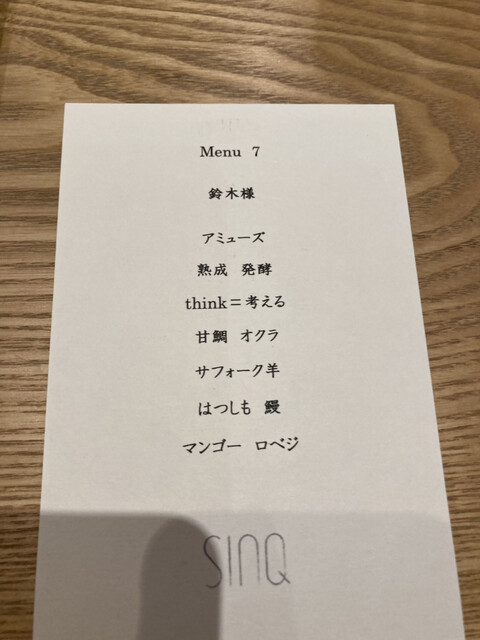 Menu 7
鈴木様
アミューズ
熟成 発酵
think＝考える
甘鯛 オクラ
サフォーク羊
はつしも 鰻
マンゴー ロベジ
SINQ